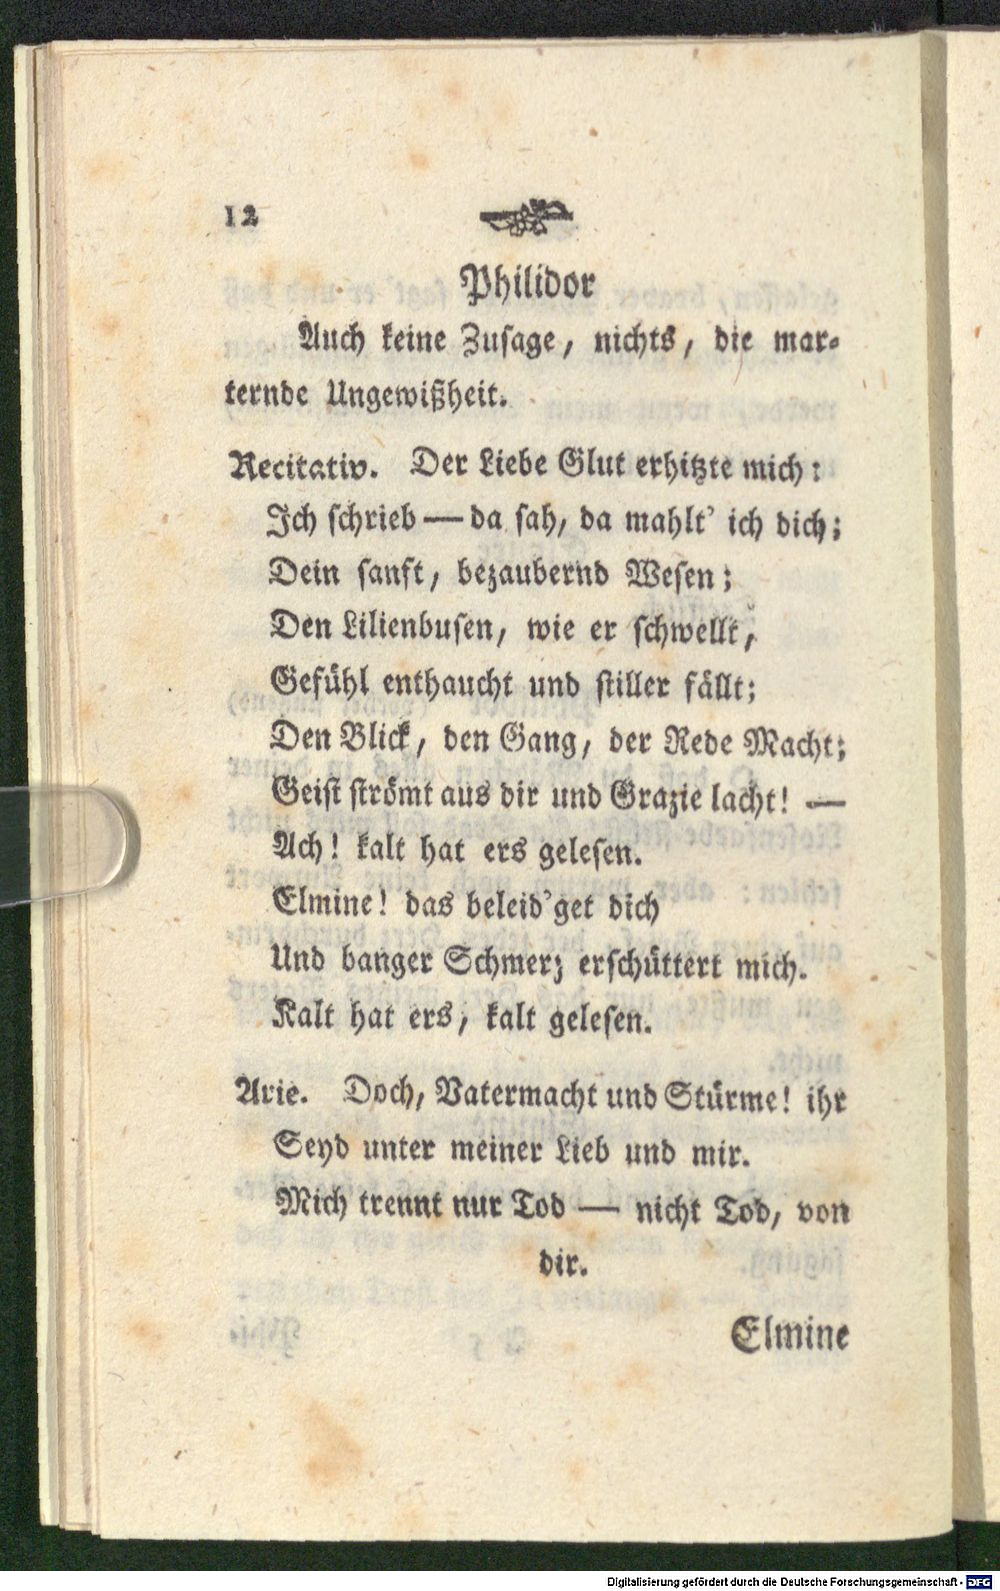 12
Philidor
Auch keine Zusage, nichts, die mar-
ternde Ungewißheit.
Recitativ. Der Liebe Glut erhitzte mich:
Ich schrieb — da sah, da mahlt' ich dich;
Dein sanft, bezaubernd Wesen;
Den Lilienbusen, wie er schwellt,
Gefühl enthaucht und stiller fällt;
Den Blick, den Gang, der Rede Macht;
Geist strömt aus dir und Grazie lacht! —
Ach! kalt hat ers gelesen.
Elmine! das beleid'get dich
Und banger Schmerz erschüttert mich.
Kalt hat ers, kalt gelesen.
Arie. Doch, Vatermacht und Stürme! ihr
Seyd unter meiner Lieb und mir.
Mich trennt nur Tod — nicht Tod, von
dir.
Elmine
Digitalisierung gefördert durch die Deutsche Forschungsgemeinschaft - DFG